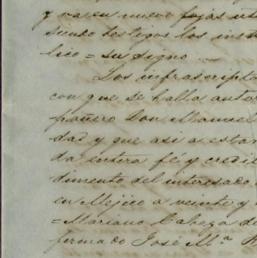 y va en nueve fojas útil
siendo testigos los inst
lico = su signo
Los infrascripto
con que se halla autor
pañero Don Manuel
dad y que asi a estar
da entera fe y credi
dimento del interesado
en Mejico a veinte y
= Mariano Cabeza de
firmado José M.ª R